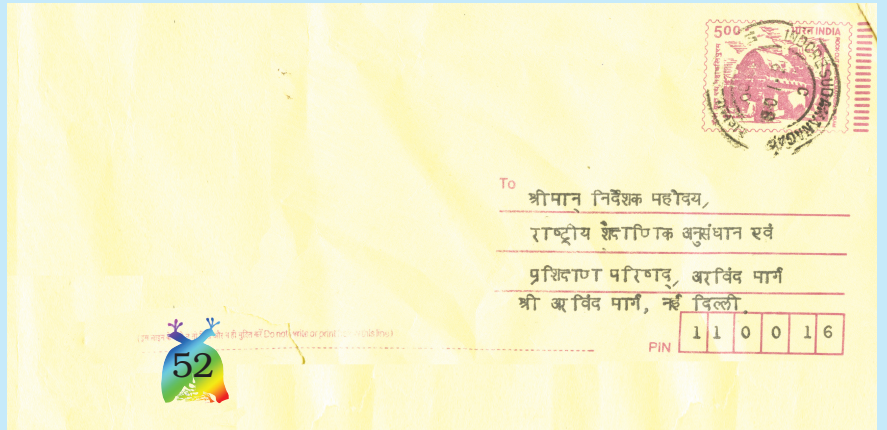 500
भारत INDIA
INDORE SUDAMANAGAR
To
श्रीमान् निर्देशक महोदय,
राष्ट्रीय शैक्षाणिक अनुसंधान एवं
प्रशिक्षाण परिषद्, अरविंद मार्ग
श्री अरविंद मार्ग, नई दिल्ली.
PIN 110016
Do not write or print
52